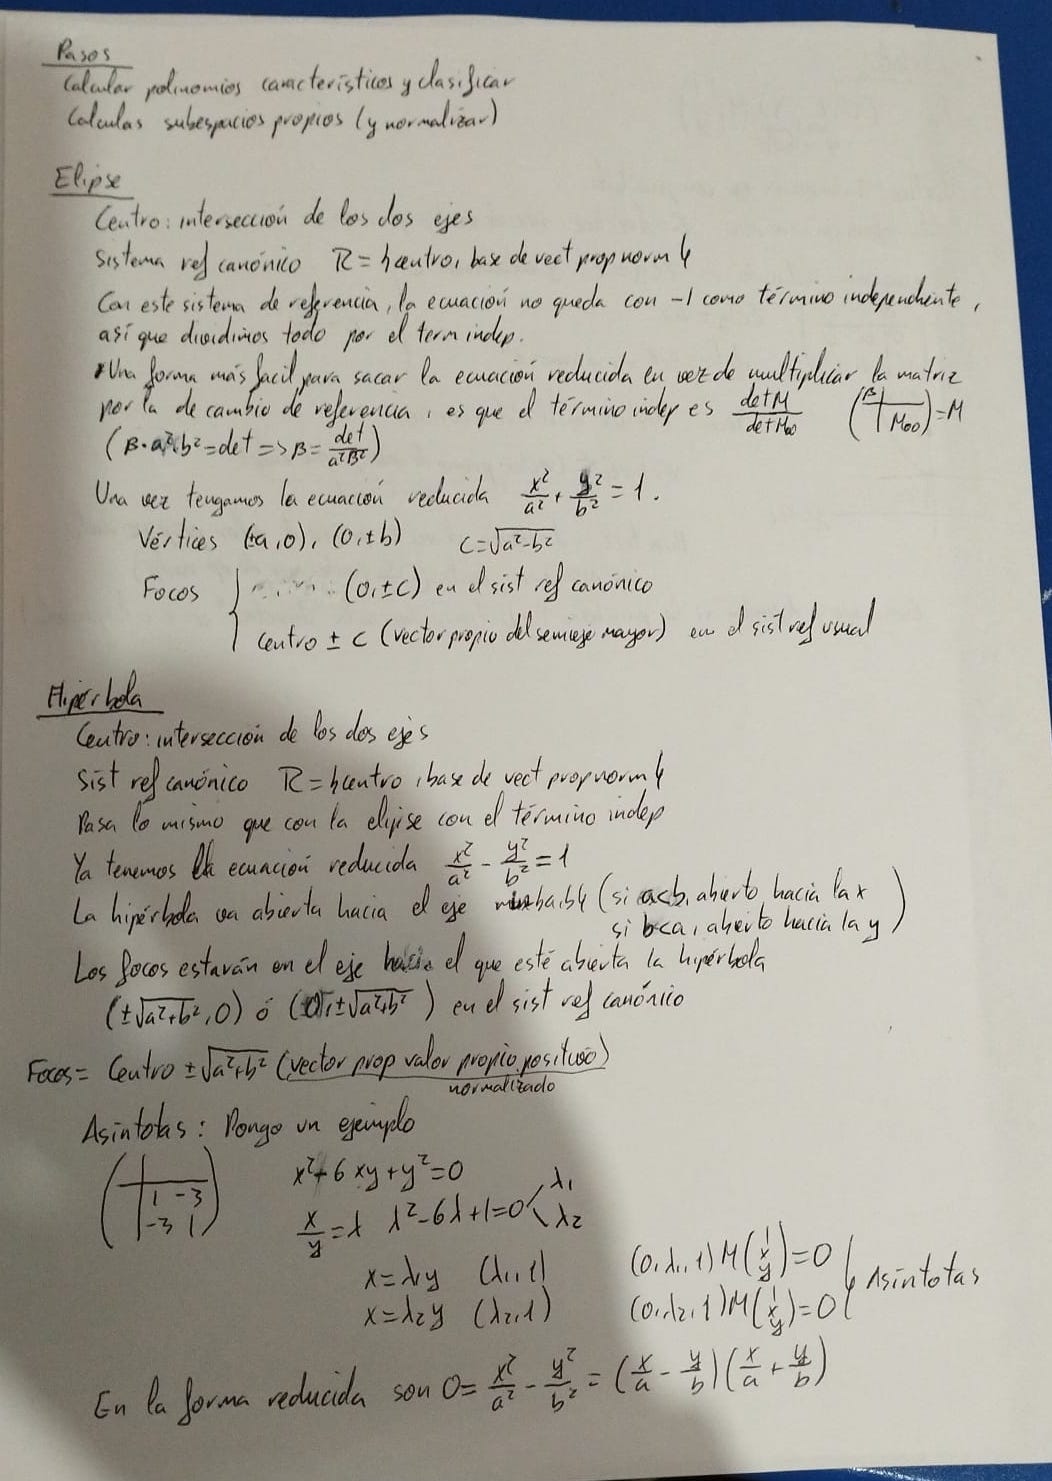 Pasos
Calcular polinomios característicos y clasificar
Calculas subespacios propios (y normalizar)
Elipse
Centro: intersección de los dos ejes
Sistema ref canónico R = {centro, base de vect prop norm}
Con este sistema de referencia, la ecuación no queda con -1 como término independiente,
así que dividimos todo por el term indep.
*Una forma más facil para sacar la ecuación reducida en vez de multiplicar la matriz
por la de cambio de referencia, es que el término indep es detM/detM₀₀ (β | M₀₀) = M
(β·a²·b² = det => β = det/a²β²)
Una vez tengamos la ecuación reducida x²/a² + y²/b² = 1.
Vértices (±a,0), (0,±b) c=√(a²-b²)
Focos { (0,±c) en el sist ref canónico
centro ± c (vector propio del semieje mayor) en el sist ref usual
Hipérbola
Centro: intersección de los dos ejes
Sist ref canónico R = {centro, base de vect prop norm}
Pasa lo mismo que con la elipse con el término indep
Ya tenemos la ecuación reducida x²/a² - y²/b² = 1
La hipérbola va abierta hacia el eje min{a,b} (si a<b, abierto hacia la x
si b<a, abierto hacia la y)
Los focos estarán en el eje hacia el que esté abierta la hipérbola
(±√(a²+b²), 0) ó (0, ±√(a²+b²)) en el sist ref canónico
Focos = Centro ± √(a²+b²) (vector prop valor propio positivo)
normalizado
Asíntotas: Pongo un ejemplo
( 1 -3 / -3 1 ) x²-6xy+y²=0
x/y = λ λ²-6λ+1=0 < λ₁ λ₂
x=λ₁y (λ₁,1) (0,λ₁,1) M (1 x y) = 0
x=λ₂y (λ₂,1) (0,λ₂,1) M (1 x y) = 0 } Asíntotas
En la forma reducida son 0 = x²/a² - y²/b² = (x/a - y/b)(x/a + y/b)